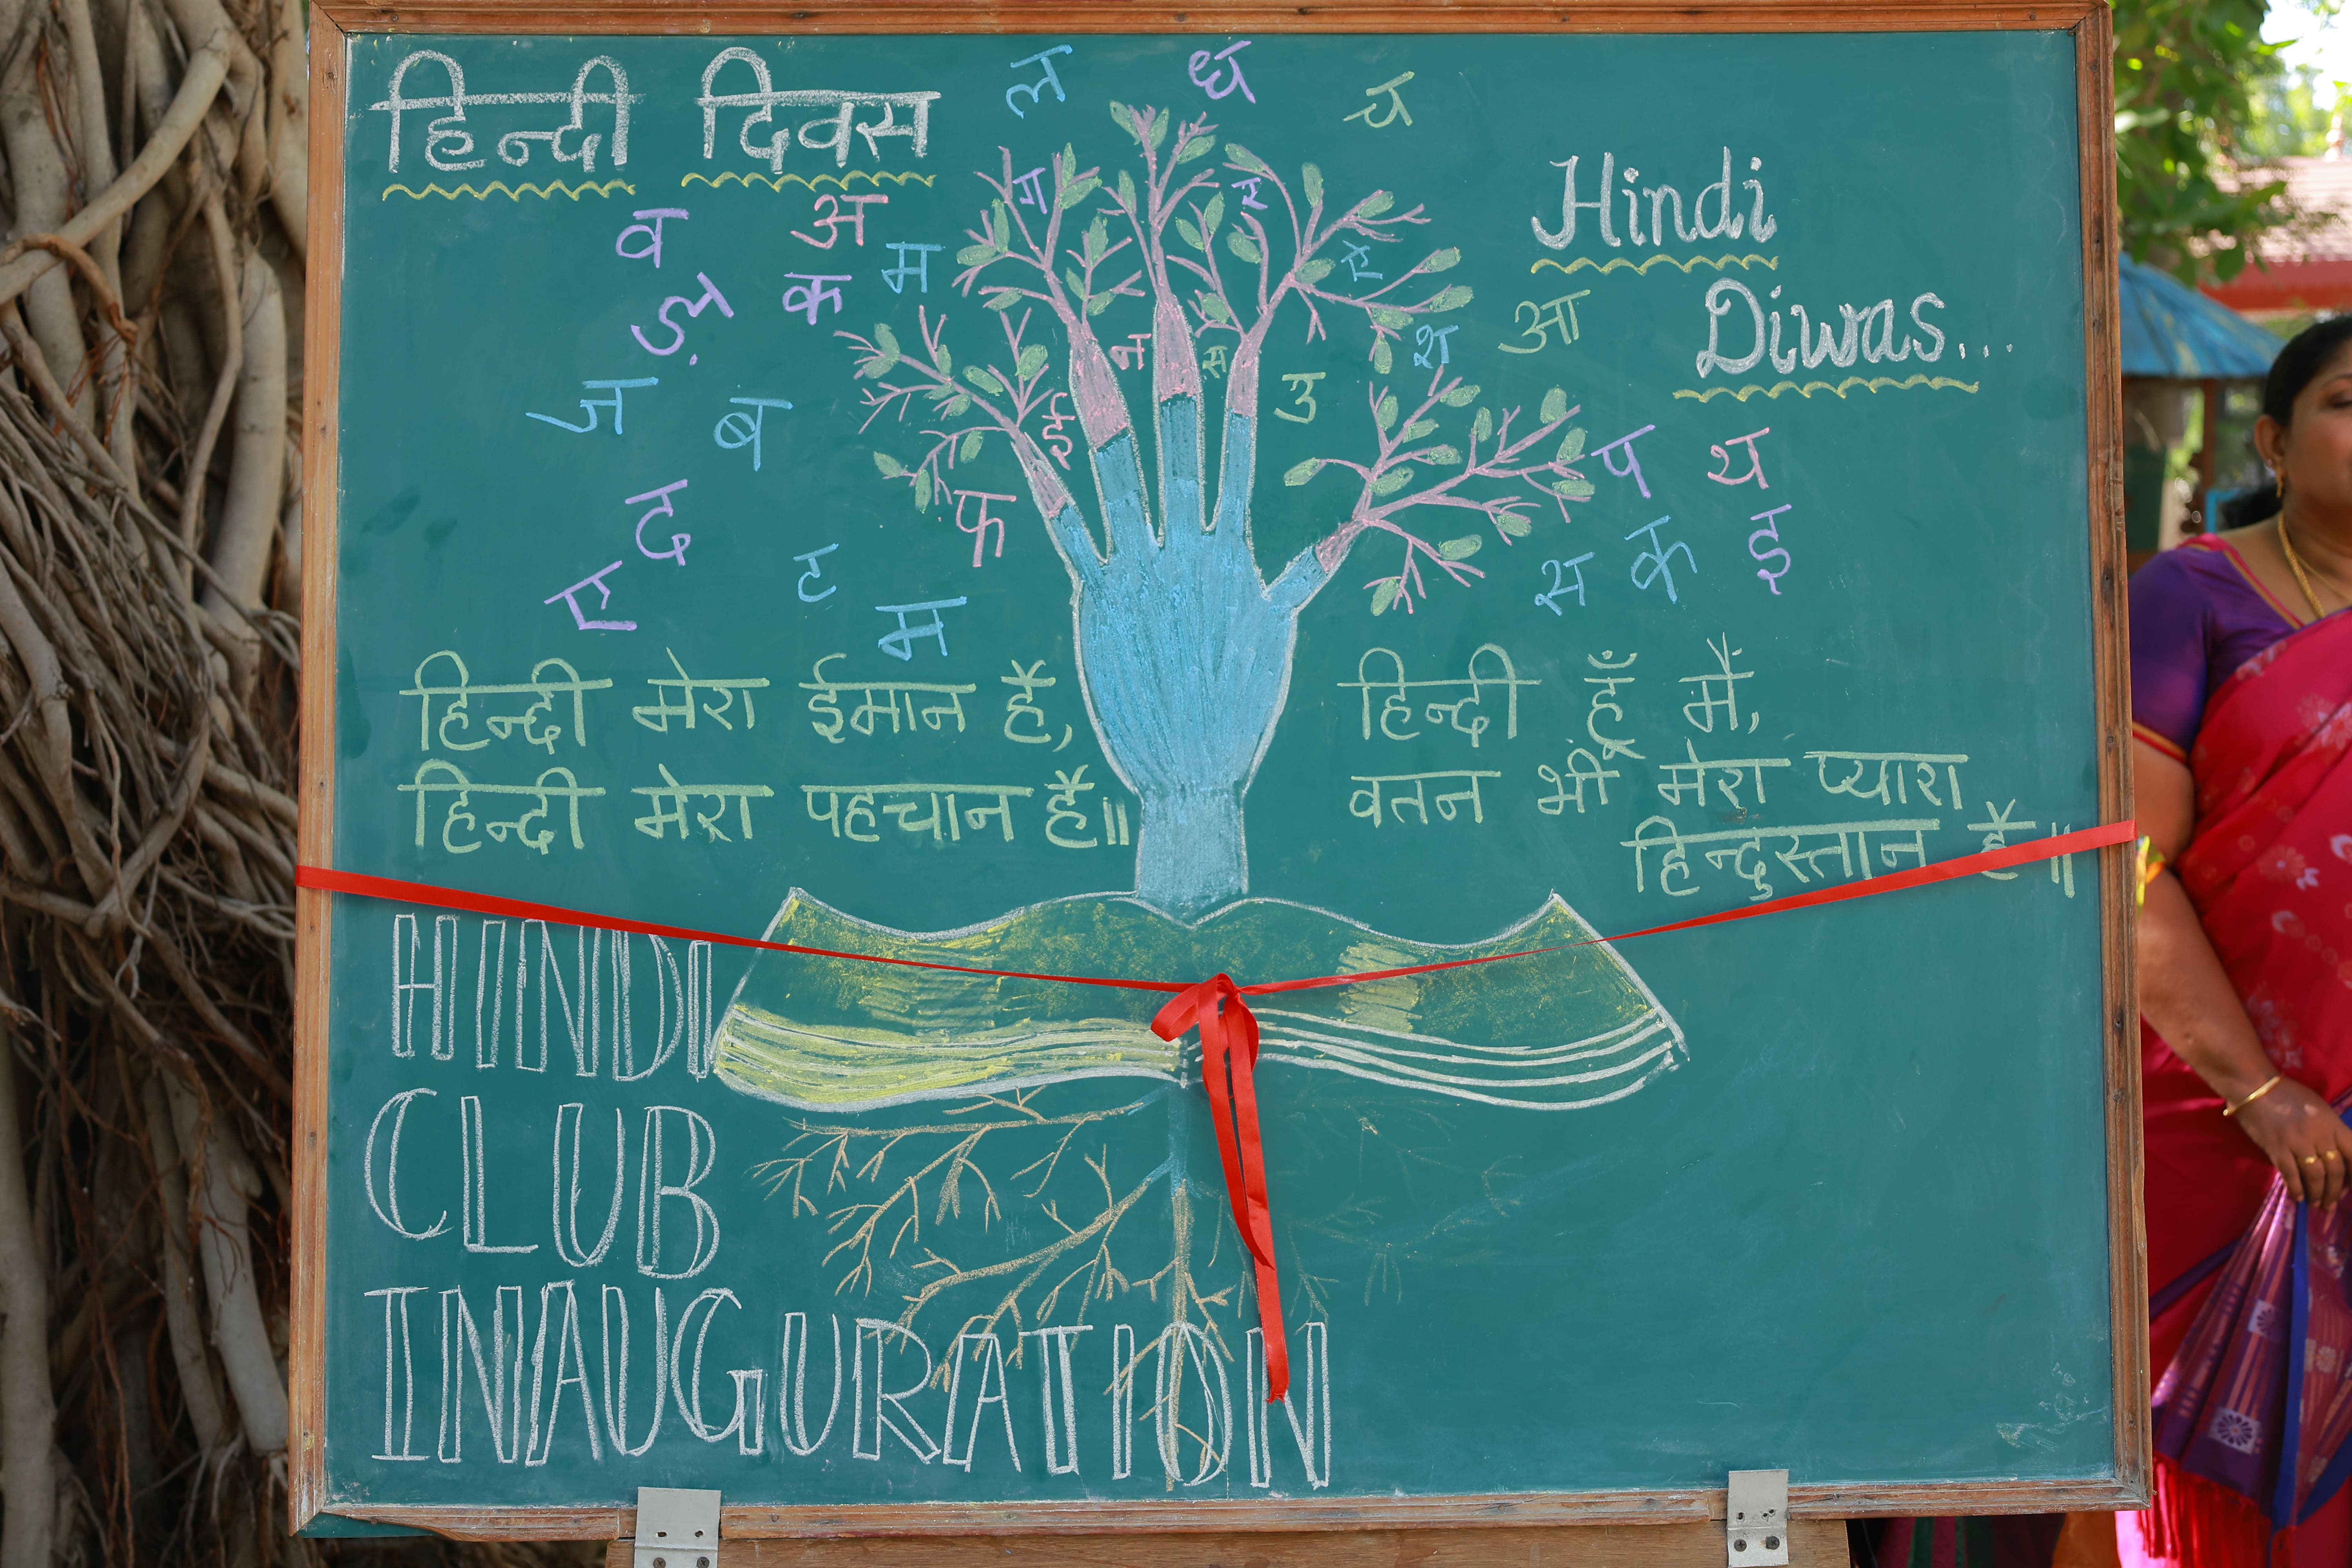 हिन्दी दिवस
Hindi
Diwas...
ल ध च
ग र
व अ
ड़ क म ए
न स श आ
ज ब ई उ
द फ प थ
ए ट म स क इ
हिन्दी मेरा ईमान है,
हिन्दी मेरा पहचान है॥
हिन्दी हूँ मैं,
वतन भी मेरा प्यारा
हिन्दुस्तान है॥
HINDI
CLUB
INAUGURATION